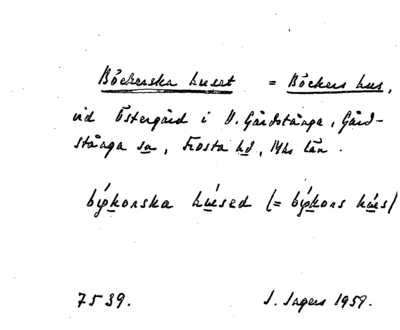 Böckerska huset = Böckers hus,
vid Östergård i V. Gårdstånga, Gård-
stånga sn, Frosta hd, Mhs län.
býkorska húsed (= býkors hús)
7539. I. Ingers 1959.